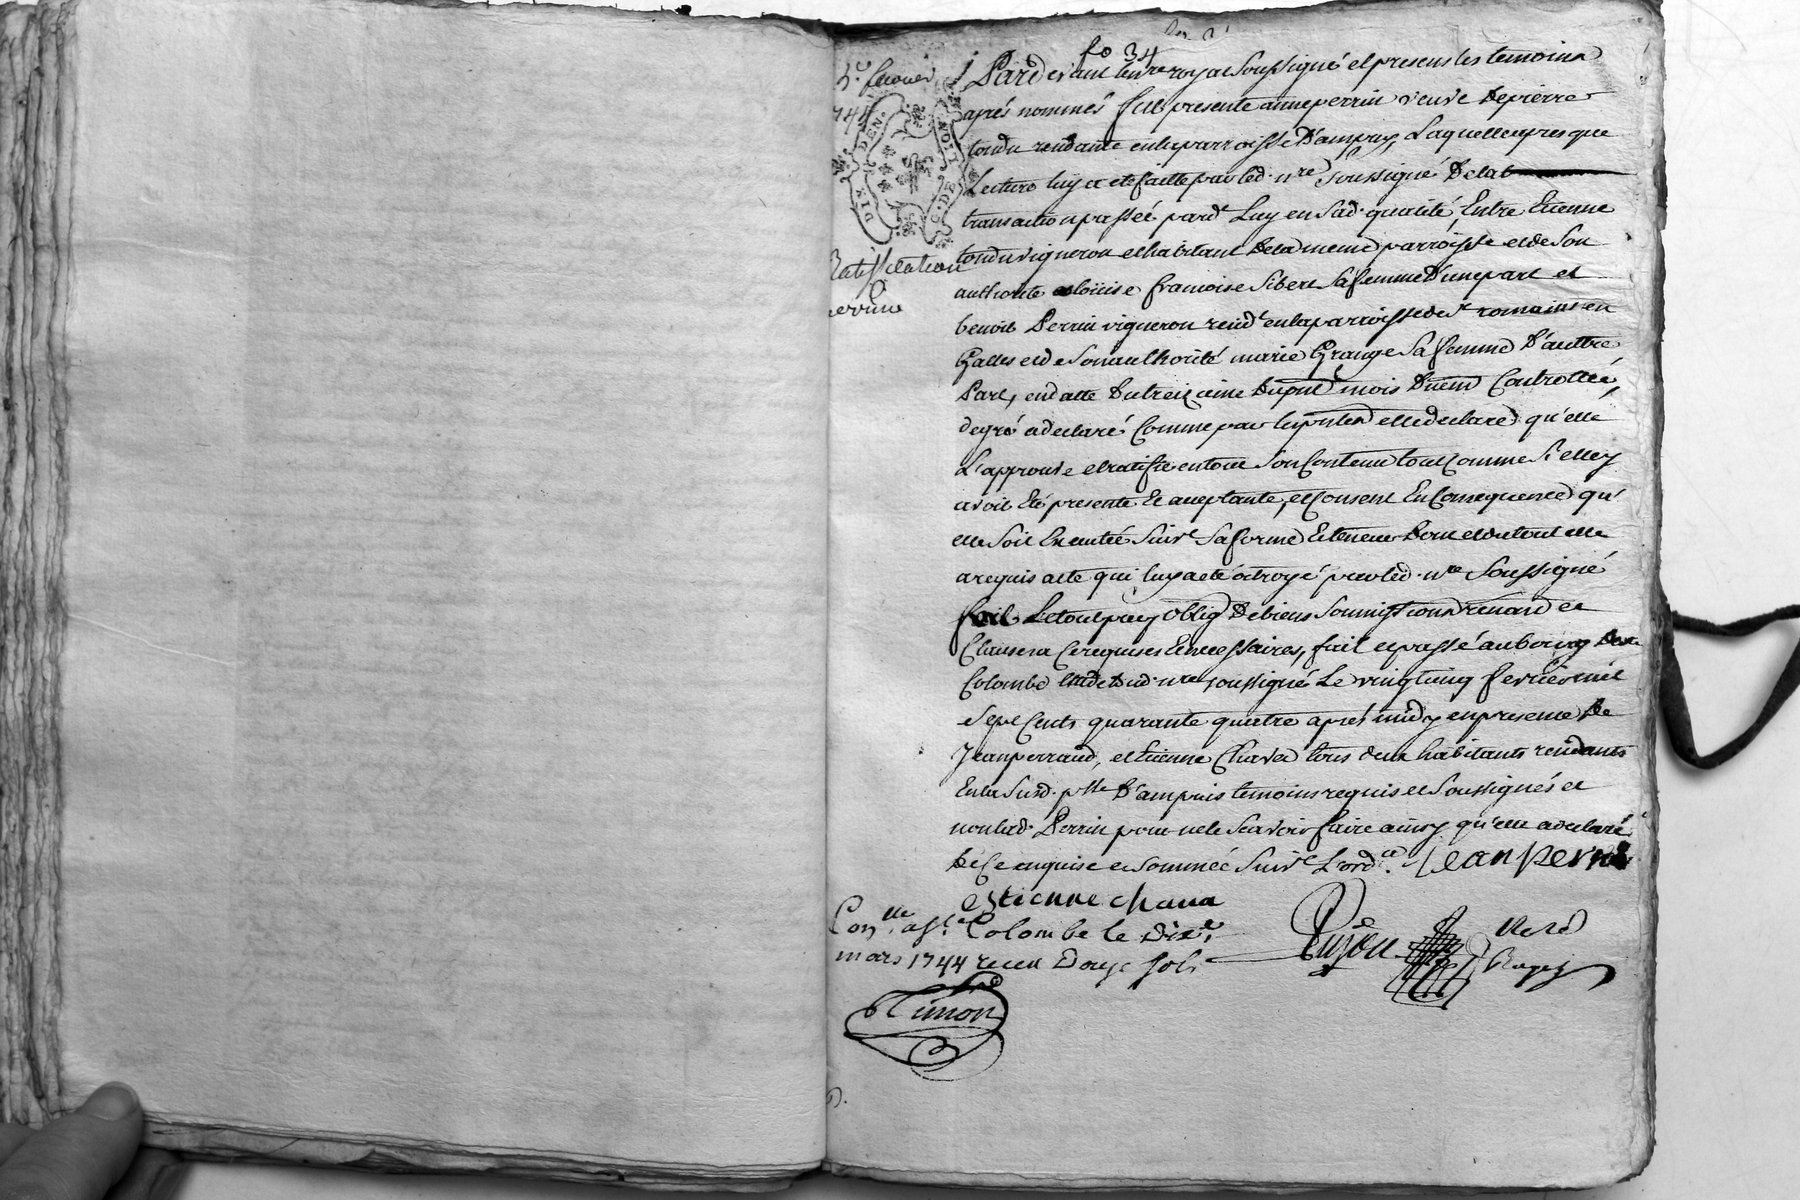 fo 34
5e fevrier
1744
GEN. DE LION
DIX DEN.
Ratiffication
perrine
Pardevant le nre royal soussigné et presens les temoins
après nommés fut presente anne perrin veuve de pierre
tondu rendante en la parroisse d'ampuy, Laquelle apres que
Lecture luy a eté faitte par led. nre soussigné de la
transaction passée pard.t Luy en sad. qualité, Entre Etienne
tondu vigneron et habitant de la meme parroisse et de son
authorité loüise francoise Sibert sa femme d'une part et
benoit Perrin vigneron resid.t en la parroisse de st romains en
Galles et de son authorité marie Grange sa femme d'auttre
Part, en datte du treizieme du pnt mois duem.t Controllée,
de gré a declaré Comme par les pntes elle declare qu'elle
L'approuve et ratifie en tout son Contenu tout Comme si elle y
avoit eté presente et acceptante, et Consent En Consequence qu'
elle soit Executée suiv.t sa forme Et teneur Dont et du tout elle
a requis acte qui luy a eté octroyé par led. nre soussigné
fait Le tout par oblig.
de biens soumissions renon.on et
Clauses a ce requises Et necessaires, fait et passé au bourg de ste
Colombe Etude dud. nre soussigné Le vingt cinq fevrier mil
sept Cents quarante quatre après midy en presence de
Jean perraud, et Etienne Chava tous deux habitants rendants
En la susd. psse d'ampuis temoins requis et soussignés et
non lad. Perrin pour ne le sçavoir faire ainsy qu'elle a declaré
de Ce enquise et sommée suiv.t L'ord.ce
estienne chava
Con.lle a s.te Colombe le dix.e
mars 1744 receu Douze sols
Simon
Dujon